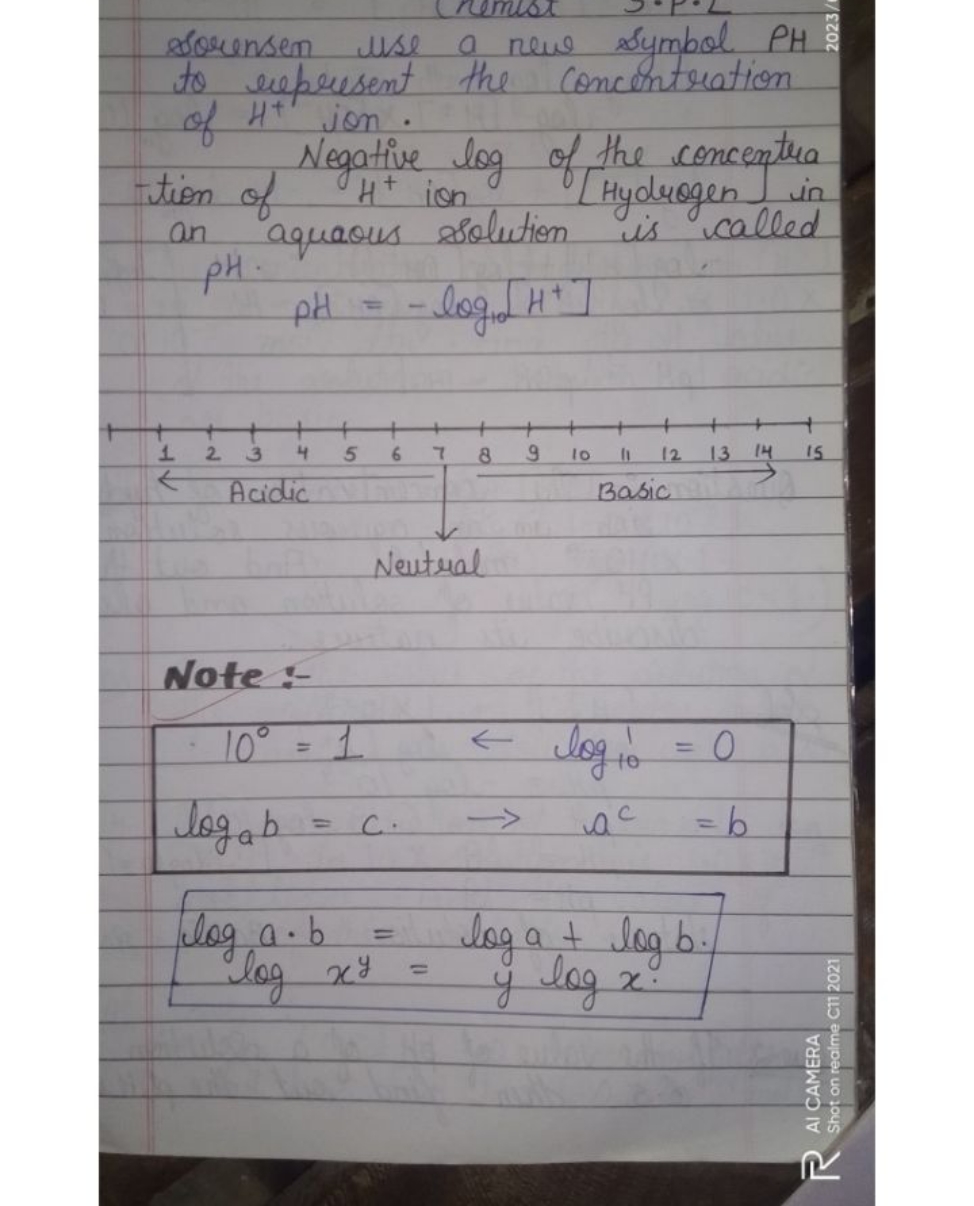 Chemist S.P.L
Sorensen use a new symbol PH
to represent the concentration
of H⁺ ion.
Negative log of the concentra
-tion of H⁺ ion [Hydrogen] in
an aquaous solution is called
pH.
pH = -log₁₀[H⁺]
1 2 3 4 5 6 7 8 9 10 11 12 13 14 15
Acidic Basic
Neutral
Note :-
10⁰ = 1 ← log₁₀¹ = 0
logₐb = c. → aᶜ = b
log a·b = log a + log b.
log xʸ = y log x.
2023/
R AI CAMERA
Shot on realme C11 2021